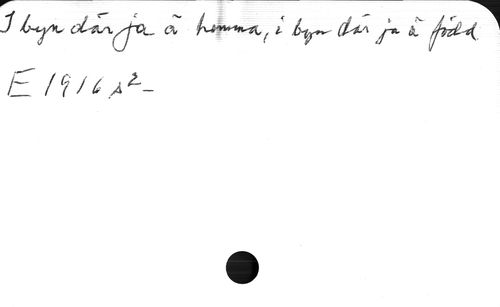 I byn där ja ä hemma, i byn där ja ä född
E 1916 s 2-